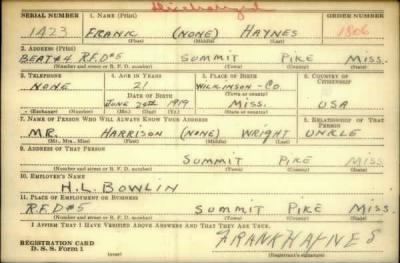 Discharged
SERIAL NUMBER 1. NAME (Print) ORDER NUMBER
1423 FRANK (NONE) HAYNES 1806
(First) (Middle) (Last)
2. ADDRESS (Print)
BEAT#4 R.F.D#5 SUMMIT PIKE MISS.
(Number and street or R. F. D. number) (Town) (County) (State)
3. TELEPHONE 4. AGE IN YEARS 5. PLACE OF BIRTH 6. COUNTRY OF CITIZENSHIP
NONE 21 WILKINSON-CO.
DATE OF BIRTH (Town or county)
JUNE 20th 1919 MISS. USA
(Exchange) (Number) (Mo.) (Day) (Yr.) (State or country)
7. NAME OF PERSON WHO WILL ALWAYS KNOW YOUR ADDRESS 8. RELATIONSHIP OF THAT PERSON
MR. HARRISON (NONE) WRIGHT UNKLE
(Mr., Mrs., Miss) (First) (Middle) (Last)
9. ADDRESS OF THAT PERSON
SUMMIT PIKE MISS.
(Number and street or R. F. D. number) (Town) (County) (State)
10. EMPLOYER'S NAME
H.L. BOWLIN
11. PLACE OF EMPLOYMENT OR BUSINESS
R.F.D#5 SUMMIT PIKE MISS.
(Number and street or R. F. D. number) (Town) (County) (State)
I AFFIRM THAT I HAVE VERIFIED ABOVE ANSWERS AND THAT THEY ARE TRUE.
REGISTRATION CARD
D. S. S. Form 1 (over) FRANK HAYNES